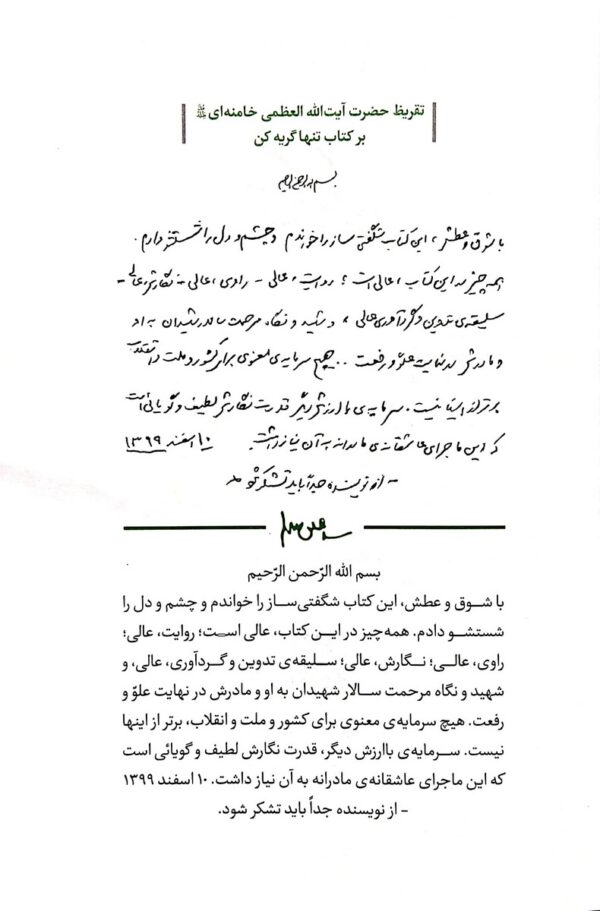 تقریظ حضرت آیت‌الله العظمی خامنه‌ای
بر کتاب تنها گریه کن
بسم الله الرحمن الرحیم
با شوق و عطش، این کتاب شگفتی‌ساز را خواندم و چشم و دل را شستشو دادم.
همه چیز در این کتاب، عالی است؛ روایت، عالی - راوی، عالی - نگارش، عالی -
سلیقه‌ی تدوین و گردآوری عالی، و شهید و نگاه مرحمت سالار شهیدان به او
و مادرش در نهایت علوّ و رفعت .. هیچ سرمایه‌ی معنوی برای کشور و ملت و انقلاب
برتر از اینها نیست. سرمایه‌ی باارزش دیگر قدرت نگارش لطیف و گویائی است
که این ماجرای عاشقانه‌ی مادرانه به آن نیاز داشت. ۱۰ اسفند ۱۳۹۹
- از نویسنده جداً باید تشکر شود
بسم الله الرّحمن الرّحیم
با شوق و عطش، این کتاب شگفتی‌ساز را خواندم و چشم و دل را
شستشو دادم. همه‌چیز در این کتاب، عالی است؛ روایت، عالی؛
راوی، عالی؛ نگارش، عالی؛ سلیقه‌ی تدوین و گردآوری، عالی، و
شهید و نگاه مرحمت سالار شهیدان به او و مادرش در نهایت علوّ و
رفعت. هیچ سرمایه‌ی معنوی برای کشور و ملت و انقلاب، برتر از اینها
نیست. سرمایه‌ی باارزش دیگر، قدرت نگارش لطیف و گویائی است
که این ماجرای عاشقانه‌ی مادرانه به آن نیاز داشت. ۱۰ اسفند ۱۳۹۹
- از نویسنده جداً باید تشکر شود.